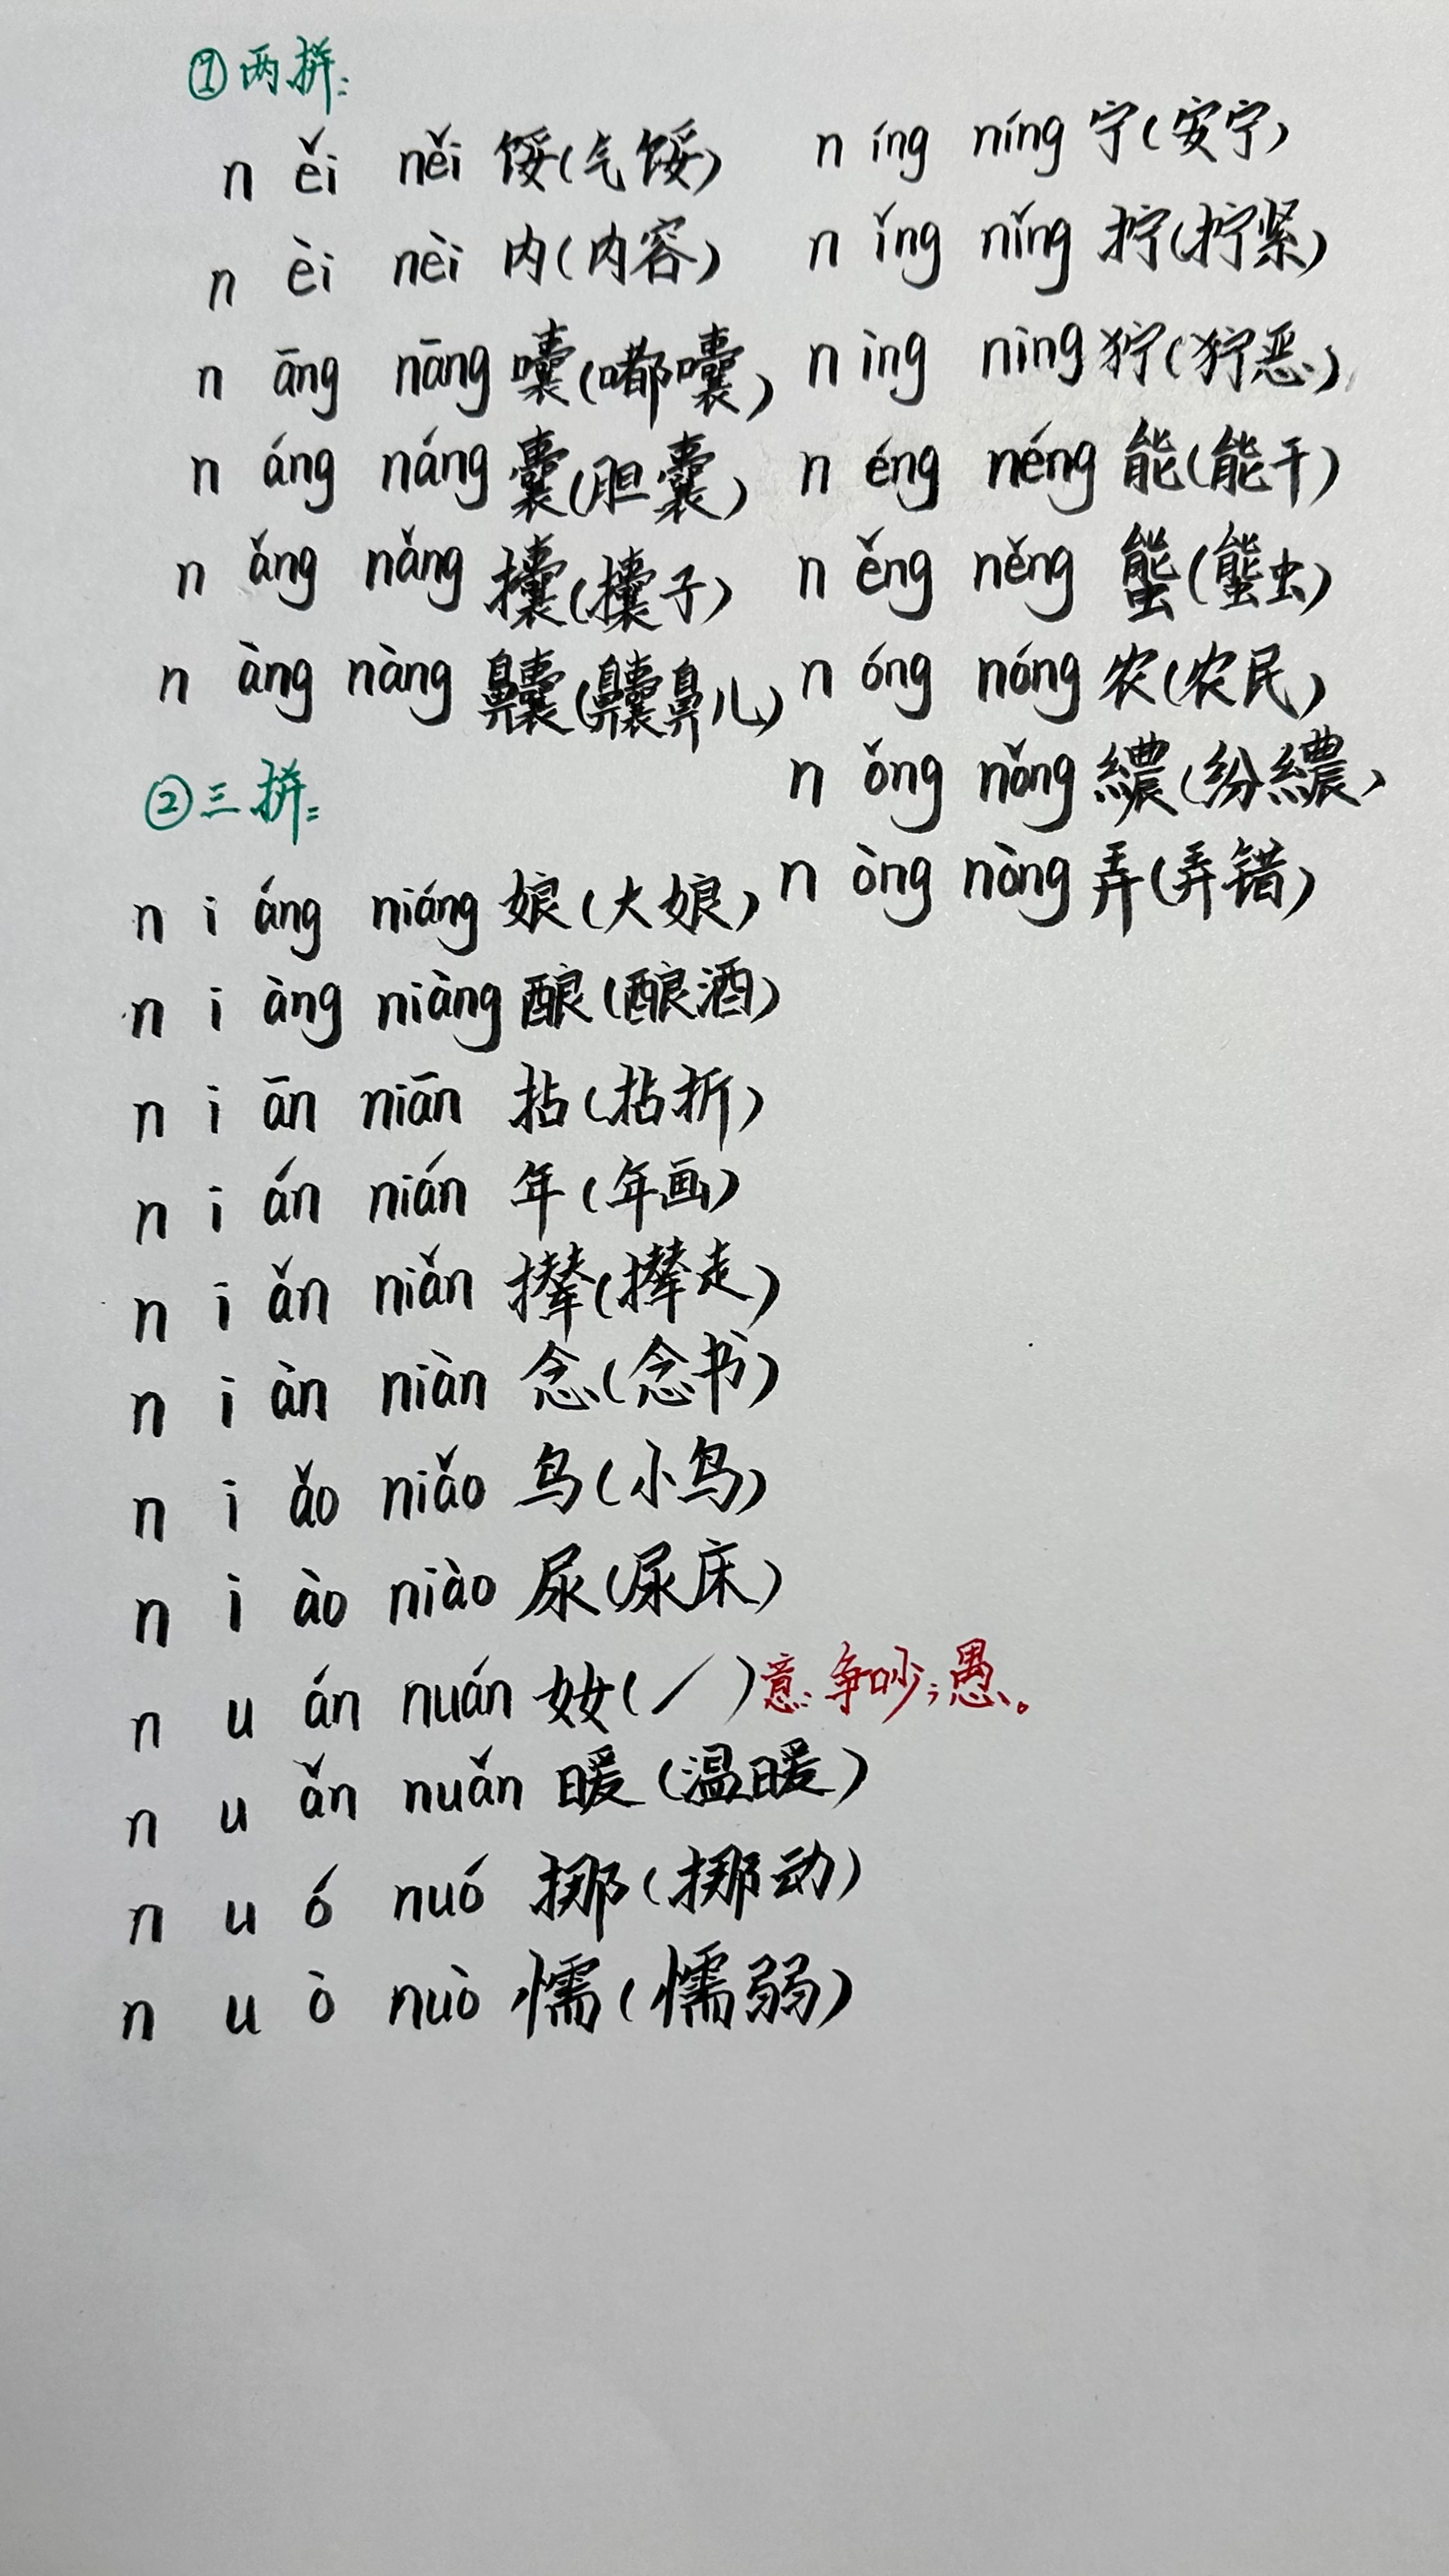 ①两拼:
n ěi něi 馁(气馁)
n èi nèi 内(内容)
n āng nāng 囔(嘟囔)
n áng náng 囊(胆囊)
n ǎng nǎng 攮(攮子)
n àng nàng 齉(齉鼻儿)
n íng níng 宁(安宁)
n ǐng nǐng 拧(拧紧)
n ìng nìng 狞(狞恶)
n éng néng 能(能干)
n ěng něng 螚(螚虫)
n óng nóng 农(农民)
n ǒng nǒng 繷(纷繷)
n òng nòng 弄(弄错)
②三拼:
n i áng niáng 娘(大娘)
n i àng niàng 酿(酿酒)
n i ān niān 拈(拈折)
n i án nián 年(年画)
n i ǎn niǎn 撵(撵走)
n i àn niàn 念(念书)
n i ǎo niǎo 鸟(小鸟)
n i ào niào 尿(尿床)
n u án nuán 奻(/)意:争吵;愚。
n u ǎn nuǎn 暖(温暖)
n u ó nuó 挪(挪动)
n u ò nuò 懦(懦弱)